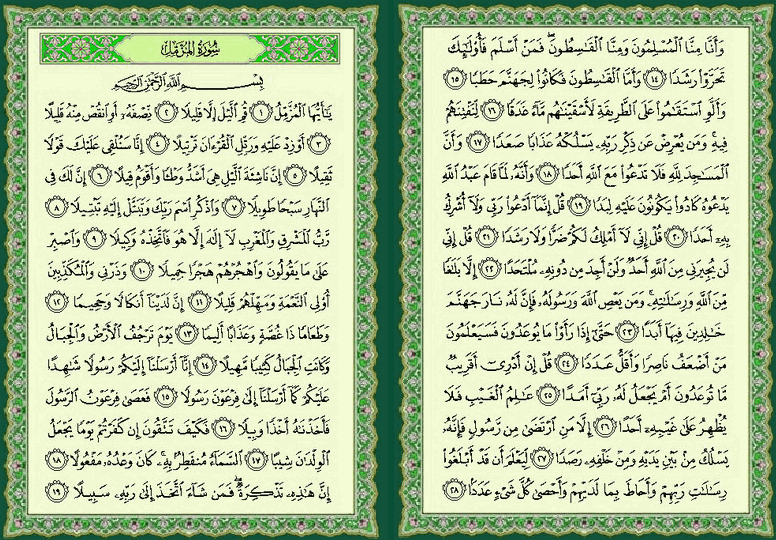 وَأَنَّا مِنَّا ٱلْمُسْلِمُونَ وَمِنَّا ٱلْقَٰسِطُونَ ۖ فَمَنْ أَسْلَمَ فَأُو۟لَٰٓئِكَ
تَحَرَّوْا۟ رَشَدًا ١٤ وَأَمَّا ٱلْقَٰسِطُونَ فَكَانُوا۟ لِجَهَنَّمَ حَطَبًا ١٥
وَأَلَّوِ ٱسْتَقَٰمُوا۟ عَلَى ٱلطَّرِيقَةِ لَأَسْقَيْنَٰهُم مَّآءً غَدَقًا ١٦ لِّنَفْتِنَهُمْ
فِيهِ ۚ وَمَن يُعْرِضْ عَن ذِكْرِ رَبِّهِۦ يَسْلُكْهُ عَذَابًا صَعَدًا ١٧ وَأَنَّ
ٱلْمَسَٰجِدَ لِلَّهِ فَلَا تَدْعُوا۟ مَعَ ٱللَّهِ أَحَدًا ١٨ وَأَنَّهُۥ لَمَّا قَامَ عَبْدُ ٱللَّهِ
يَدْعُوهُ كَادُوا۟ يَكُونُونَ عَلَيْهِ لِبَدًا ١٩ قُلْ إِنَّمَآ أَدْعُوا۟ رَبِّى وَلَآ أُشْرِكُ
بِهِۦٓ أَحَدًا ٢٠ قُلْ إِنِّى لَآ أَمْلِكُ لَكُمْ ضَرًّا وَلَا رَشَدًا ٢١ قُلْ إِنِّى
لَن يُجِيرَنِى مِنَ ٱللَّهِ أَحَدٌ وَلَنْ أَجِدَ مِن دُونِهِۦ مُلْتَحَدًا ٢٢ إِلَّا بَلَٰغًا
مِّنَ ٱللَّهِ وَرِسَٰلَٰتِهِۦ ۚ وَمَن يَعْصِ ٱللَّهَ وَرَسُولَهُۥ فَإِنَّ لَهُۥ نَارَ جَهَنَّمَ
خَٰلِدِينَ فِيهَآ أَبَدًا ٢٣ حَتَّىٰٓ إِذَا رَأَوْا۟ مَا يُوعَدُونَ فَسَيَعْلَمُونَ
مَنْ أَضْعَفُ نَاصِرًا وَأَقَلُّ عَدَدًا ٢٤ قُلْ إِنْ أَدْرِىٓ أَقَرِيبٌ
مَّا تُوعَدُونَ أَمْ يَجْعَلُ لَهُۥ رَبِّىٓ أَمَدًا ٢٥ عَٰلِمُ ٱلْغَيْبِ فَلَا
يُظْهِرُ عَلَىٰ غَيْبِهِۦٓ أَحَدًا ٢٦ إِلَّا مَنِ ٱرْتَضَىٰ مِن رَّسُولٍ فَإِنَّهُۥ
يَسْلُكُ مِنۢ بَيْنِ يَدَيْهِ وَمِنْ خَلْفِهِۦ رَصَدًا ٢٧ لِّيَعْلَمَ أَن قَدْ أَبْلَغُوا۟
رِسَٰلَٰتِ رَبِّهِمْ وَأَحَاطَ بِمَا لَدَيْهِمْ وَأَحْصَىٰ كُلَّ شَىْءٍ عَدَدًۢا ٢٨
سُورَةُ ٱلْمُزَّمِّلِ
بِسْمِ ٱللَّهِ ٱلرَّحْمَٰنِ ٱلرَّحِيمِ
يَٰٓأَيُّهَا ٱلْمُزَّمِّلُ ١ قُمِ ٱلَّيْلَ إِلَّا قَلِيلًا ٢ نِّصْفَهُۥٓ أَوِ ٱنقُصْ مِنْهُ قَلِيلًا
٣ أَوْ زِدْ عَلَيْهِ وَرَتِّلِ ٱلْقُرْءَانَ تَرْتِيلًا ٤ إِنَّا سَنُلْقِى عَلَيْكَ قَوْلًا
ثَقِيلًا ٥ إِنَّ نَاشِئَةَ ٱلَّيْلِ هِىَ أَشَدُّ وَطْـًٔا وَأَقْوَمُ قِيلًا ٦ إِنَّ لَكَ فِى
ٱلنَّهَارِ سَبْحًا طَوِيلًا ٧ وَٱذْكُرِ ٱسْمَ رَبِّكَ وَتَبَتَّلْ إِلَيْهِ تَبْتِيلًا ٨
رَّبُّ ٱلْمَشْرِقِ وَٱلْمَغْرِبِ لَآ إِلَٰهَ إِلَّا هُوَ فَٱتَّخِذْهُ وَكِيلًا ٩ وَٱصْبِرْ
عَلَىٰ مَا يَقُولُونَ وَٱهْجُرْهُمْ هَجْرًا جَمِيلًا ١٠ وَذَرْنِى وَٱلْمُكَذِّبِينَ
أُو۟لِى ٱلنَّعْمَةِ وَمَهِّلْهُمْ قَلِيلًا ١١ إِنَّ لَدَيْنَآ أَنكَالًا وَجَحِيمًا ١٢
وَطَعَامًا ذَا غُصَّةٍ وَعَذَابًا أَلِيمًا ١٣ يَوْمَ تَرْجُفُ ٱلْأَرْضُ وَٱلْجِبَالُ
وَكَانَتِ ٱلْجِبَالُ كَثِيبًا مَّهِيلًا ١٤ إِنَّآ أَرْسَلْنَآ إِلَيْكُمْ رَسُولًا شَٰهِدًا
عَلَيْكُمْ كَمَآ أَرْسَلْنَآ إِلَىٰ فِرْعَوْنَ رَسُولًا ١٥ فَعَصَىٰ فِرْعَوْنُ ٱلرَّسُولَ
فَأَخَذْنَٰهُ أَخْذًا وَبِيلًا ١٦ فَكَيْفَ تَتَّقُونَ إِن كَفَرْتُمْ يَوْمًا يَجْعَلُ
ٱلْوِلْدَٰنَ شِيبًا ١٧ ٱلسَّمَآءُ مُنفَطِرٌۢ بِهِۦ ۚ كَانَ وَعْدُهُۥ مَفْعُولًا ١٨
إِنَّ هَٰذِهِۦ تَذْكِرَةٌ ۖ فَمَن شَآءَ ٱتَّخَذَ إِلَىٰ رَبِّهِۦ سَبِيلًا ١٩